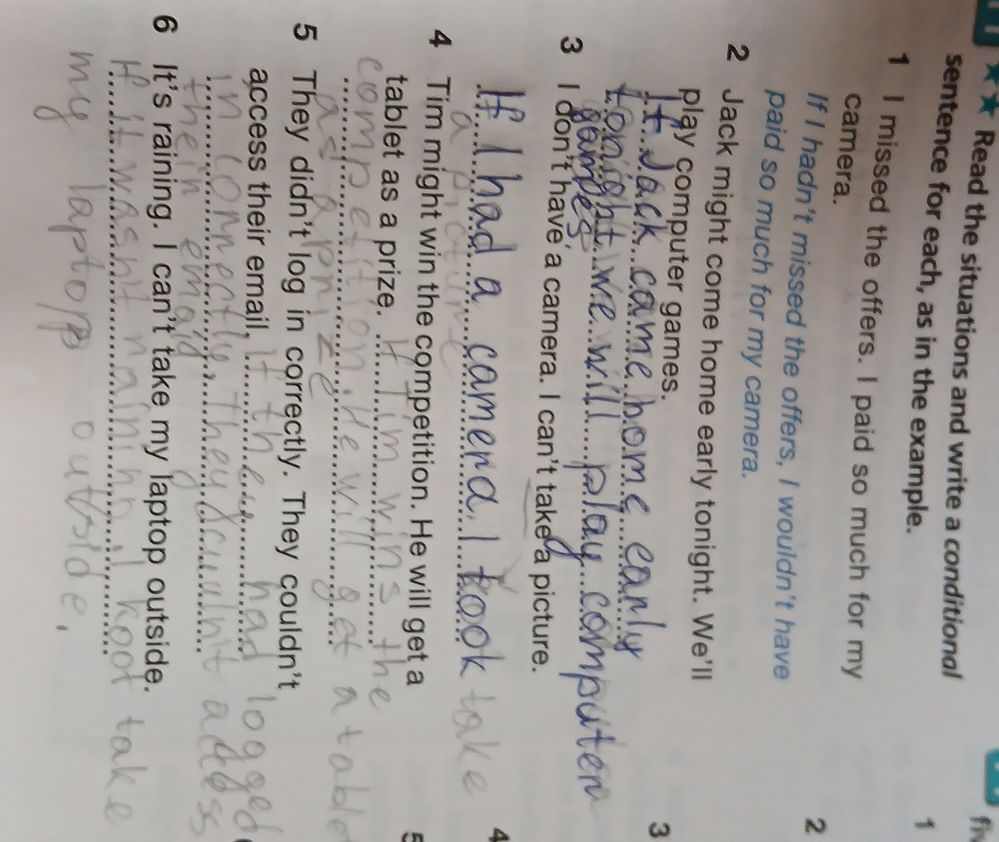 ★★ Read the situations and write a conditional
sentence for each, as in the example.
1 I missed the offers. I paid so much for my
camera.
If I hadn't missed the offers, I wouldn't have
paid so much for my camera.
2 Jack might come home early tonight. We'll
play computer games.
If Jack came home early
tonight we will play computer
games.
3 I don't have a camera. I can't take a picture.
If I had a camera I took take
a picture
4 Tim might win the competition. He will get a
tablet as a prize. If Tim wins the
competition, He will get a table
as a prize
5 They didn't log in correctly. They couldn't
access their email. If they had logged
in correctly, they
their email
6 It's raining. I can't take my laptop outside.
If it wasnt I take
my laptop outside.
fiv
1
2
3
4
5